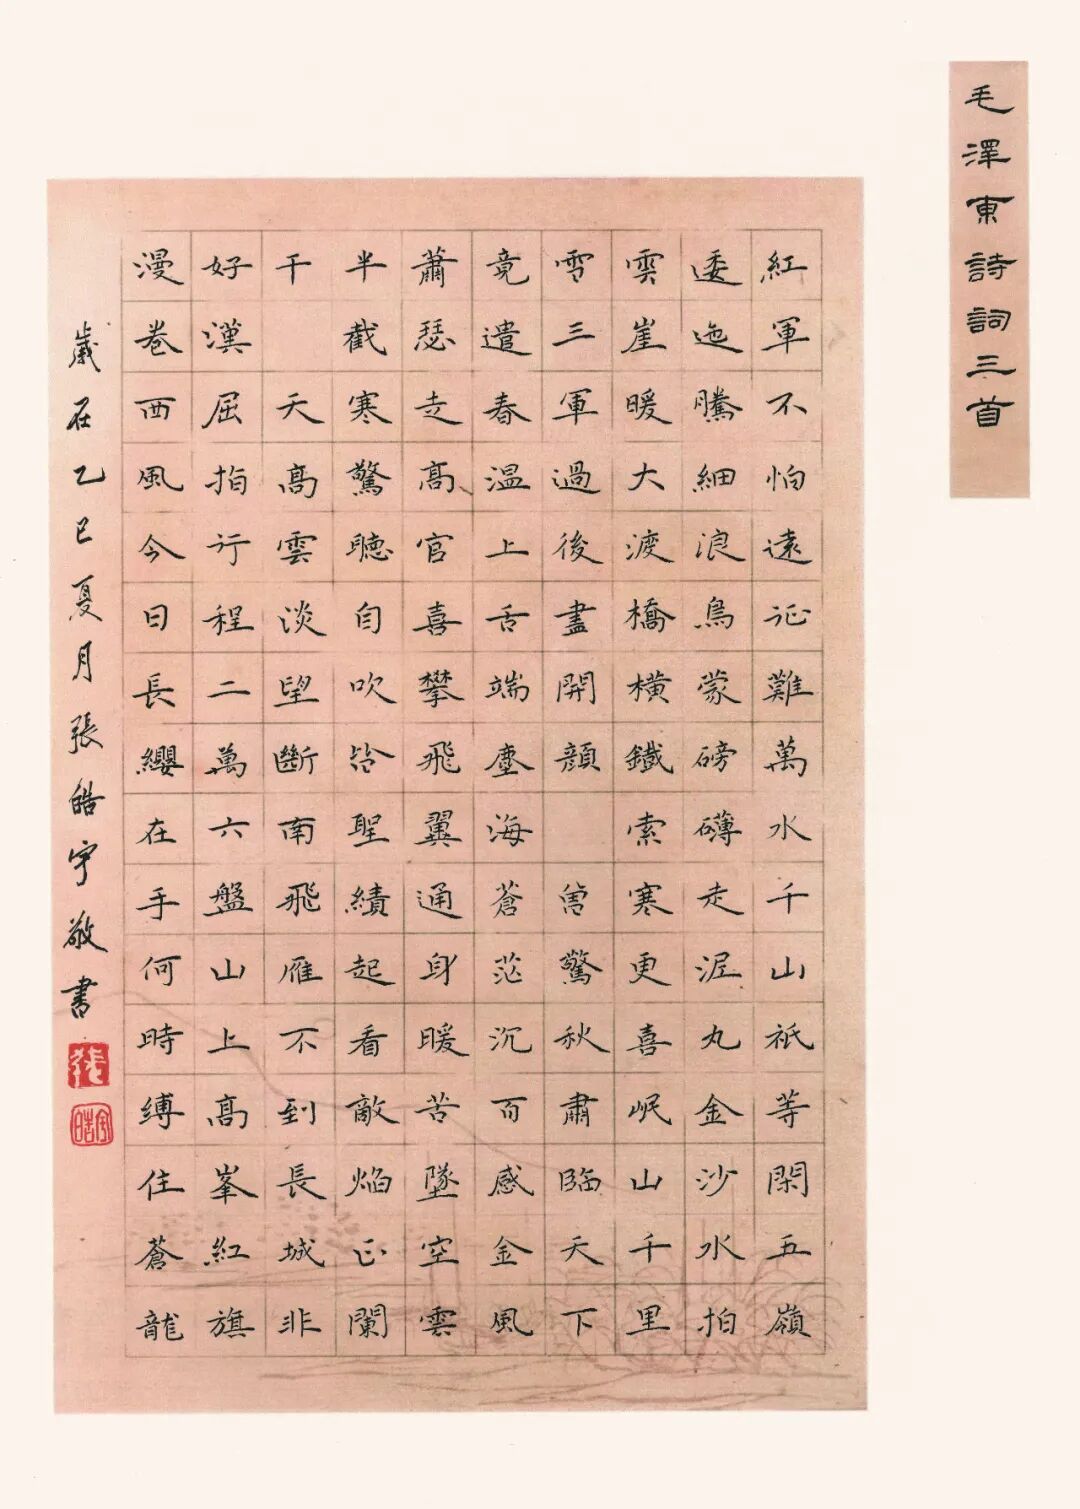 毛澤東詩詞三首
紅軍不怕遠征難萬水千山祇等閑五嶺
逶迤騰細浪烏蒙磅礴走泥丸金沙水拍
雲崖暖大渡橋橫鐵索寒更喜岷山千里
雪三軍過後盡開顏 曾驚秋肅臨天下
竟遣春温上舌端塵海蒼茫沉而感金風
蕭瑟走高官喜攀飛翼通身暖苦墜空雲
半截寒驚聽自吹皆聖績起看敵焰正闌
干 天高雲淡望斷南飛雁不到長城非
好漢屈指行程二萬六盤山上高峯紅旗
漫卷西風今日長纓在手何時縛住蒼龍
歲在乙巳夏月張皓宇敬書
張
皓宇